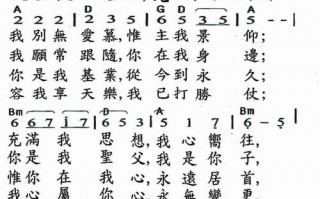 A D G D A
2 2 2 | 2 2 2 | 6 5 3 5 | 5 - - |
我別無愛慕,惟主我景仰;
我願常跟隨,你在我身邊;
你是我基業,從今到永久;
容我享天樂,我已打勝仗;
Bm D A Bm
6 6 7 1 7 | 6 5 3 | 5 1 7 | 6 - 5 |
充滿我思想,我心嚮往,
你是我聖父,我是你子,
惟你在我心,永遠居首,
我心屬你心,永無變更,